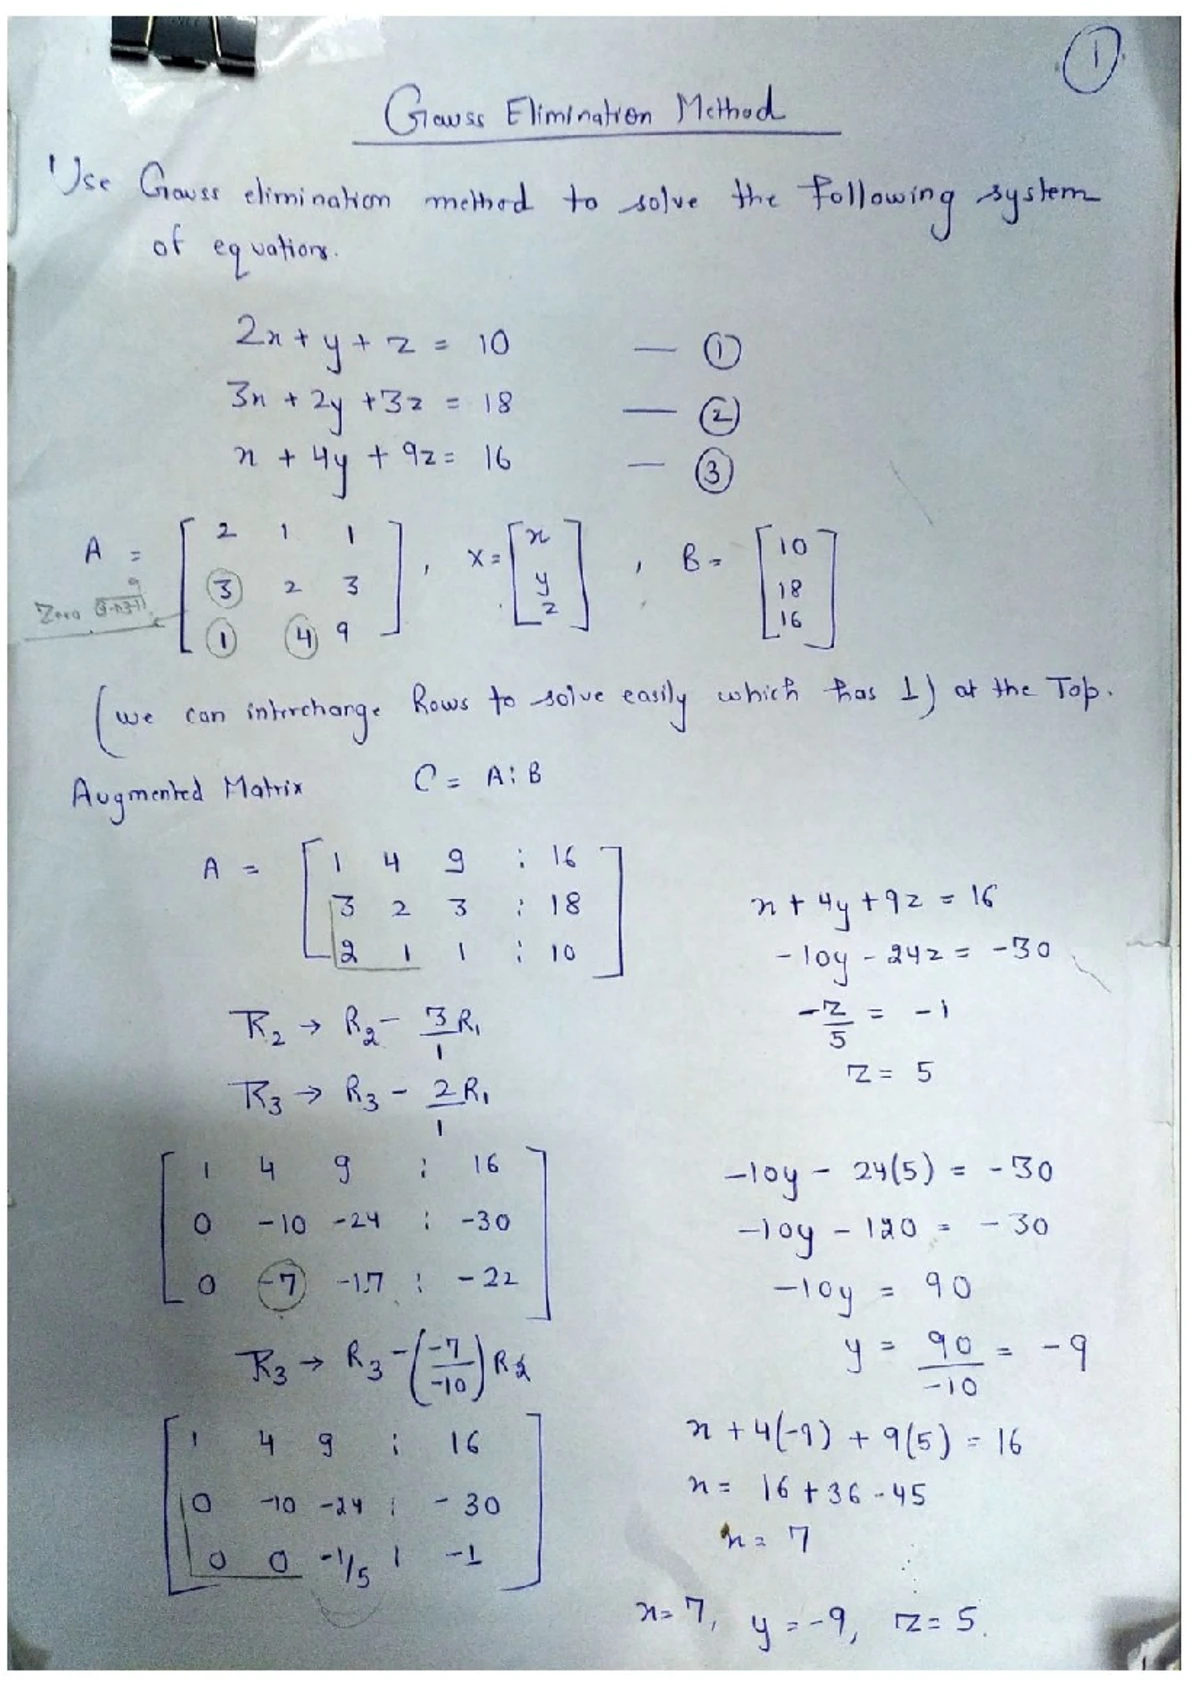 1
Gauss Elimination Method
Use Gauss elimination method to solve the following system
of equations.
2x + y + z = 10 — ①
3x + 2y + 3z = 18 — ②
x + 4y + 9z = 16 — ③
A = [ 2 1 1 ], X = [ x ], B = [ 10 ]
3 2 3 y 18
Zero
1 4 9 z 16
(we can interchange Rows to solve easily which has 1) at the Top.
Augmented Matrix C = A : B
A = [ 1 4 9 : 16 ]
3 2 3 : 18
2 1 1 : 10
R2 → R2 - 3/1 R1
R3 → R3 - 2/1 R1
[ 1 4 9 : 16 ]
0 -10 -24 : -30
0 -7 -17 : -22
R3 → R3 - (-7/-10) R2
[ 1 4 9 : 16 ]
0 -10 -24 : -30
0 0 -1/5 : -1
x + 4y + 9z = 16
-10y - 24z = -30
-z/5 = -1
z = 5
-10y - 24(5) = -30
-10y - 120 = -30
-10y = 90
y = 90/-10 = -9
x + 4(-9) + 9(5) = 16
x = 16 + 36 - 45
x = 7
x = 7, y = -9, z = 5.